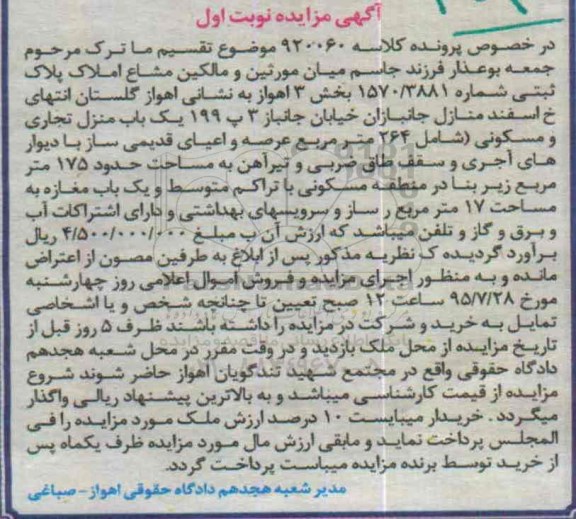 آگهی مزایده نوبت اول
در خصوص پرونده کلاسه ۹۲۰۰۶۰ موضوع تقسیم ما ترک مرحوم
جمعه بوعذار فرزند جاسم میان مورثین و مالکین مشاع املاک پلاک
ثبتی شماره ۱۵۷۰/۳۸۸۱ بخش ۳ اهواز به نشانی اهواز گلستان انتهای
خ اسفند منازل جانبازان خیابان جانباز ۳ پ ۱۹۹ یک باب منزل تجاری
و مسکونی (شامل ۲۶۴ متر مربع عرصه و اعیای قدیمی ساز با دیوار
های آجری و سقف طاق ضربی و تیرآهن به مساحت حدود ۱۷۵ متر
مربع زیر بنا در منطقه مسکونی با تراکم متوسط و یک باب مغازه به
مساحت ۱۷ متر مربع ر ساز و سرویسهای بهداشتی و دارای اشتراکات آب
و برق و گاز و تلفن میباشد که ارزش آن ب مبلغ ۴/۵۰۰/۰۰۰/۰۰۰ ریال
برآورد گردیده ک نظریه مذکور پس از ابلاغ به طرفین مصون از اعتراض
مانده و به منظور اجرای مزایده و فروش اموال اعلامی روز چهارشنبه
مورخ ۹۵/۷/۲۸ ساعت ۱۲ صبح تعیین تا چنانچه شخص و یا اشخاصی
تمایل به خرید و شرکت در مزایده را داشته باشند ظرف ۵ روز قبل از
تاریخ مزایده از محل ملک بازدید و در وقت مقرر در محل شعبه هجدهم
دادگاه حقوقی واقع در مجتمع شهید تندگویان اهواز حاضر شوند شروع
مزایده از قیمت کارشناسی میباشد و به بالاترین پیشنهاد ریالی واگذار
میگردد . خریدار میبایست ۱۰ درصد ارزش ملک مورد مزایده را فی
المجلس پرداخت نماید و مابقی ارزش مال مورد مزایده ظرف یکماه پس
از خرید توسط برنده مزایده میباست پرداخت گردد.
مدیر شعبه هجدهم دادگاه حقوقی اهواز - صباغی